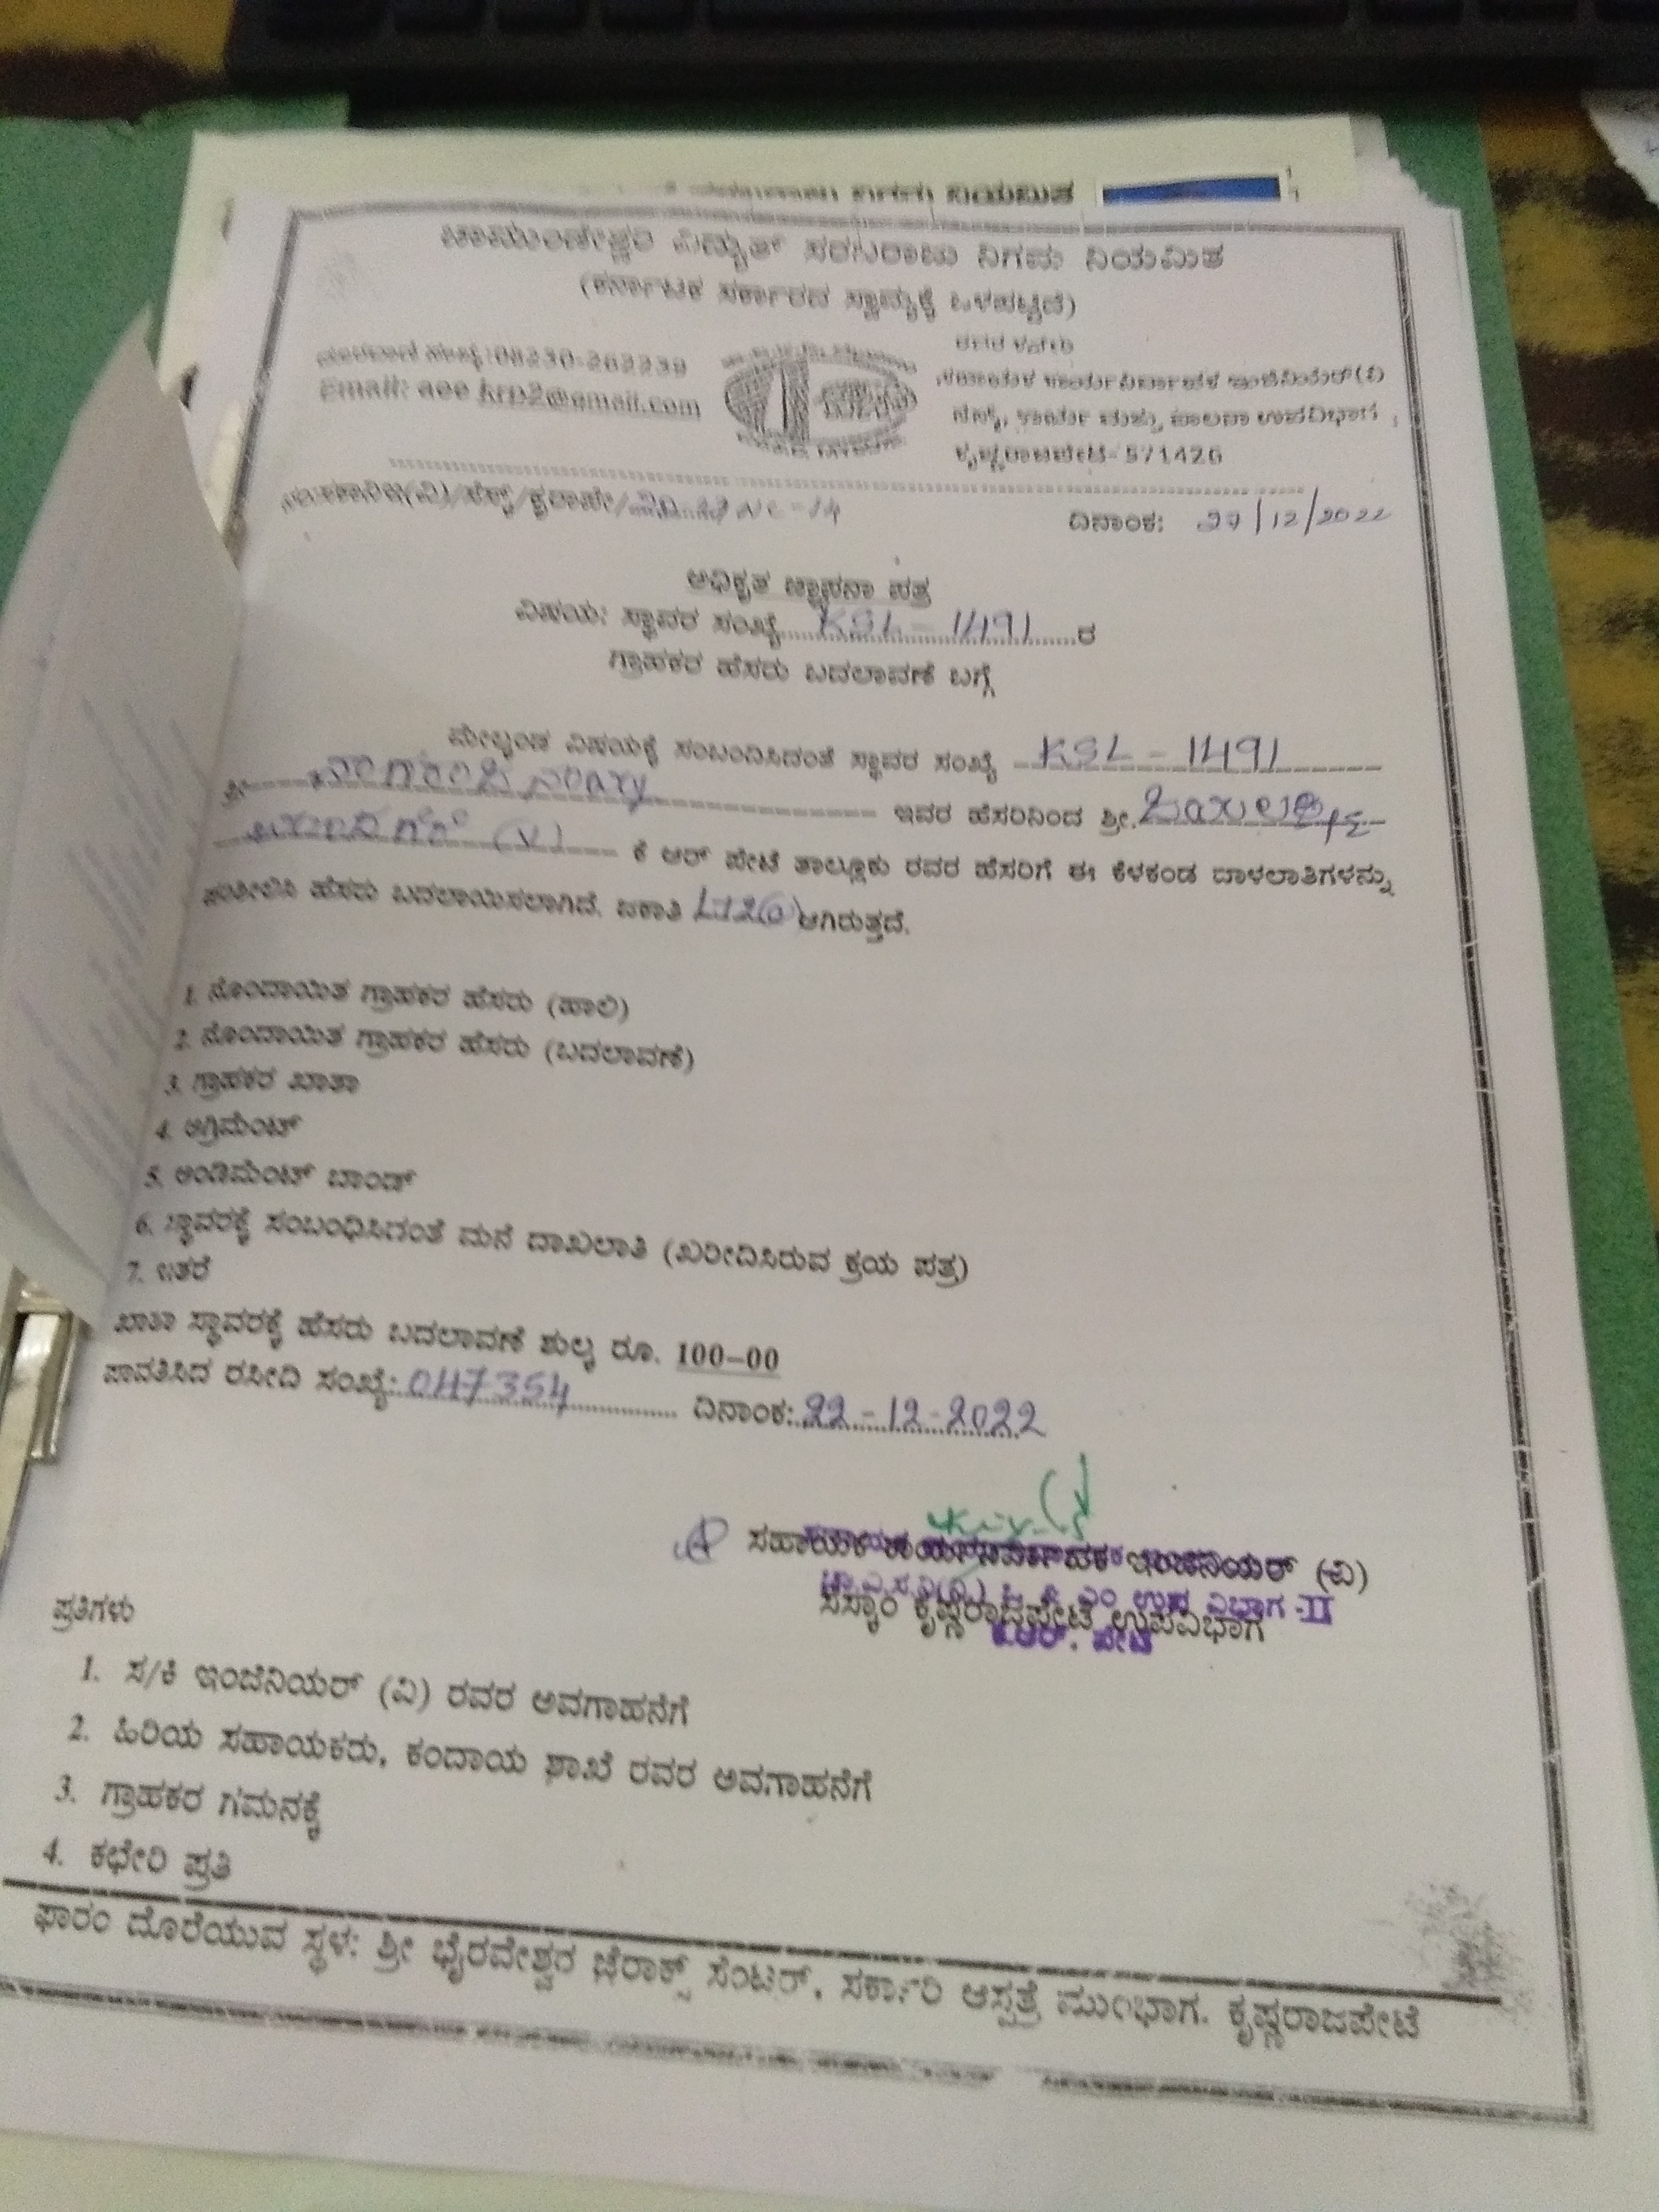 ಚಾಮುಂಡೇಶ್ವರಿ ವಿದ್ಯುತ್ ಸರಬರಾಜು ನಿಗಮ ನಿಯಮಿತ
(ಕರ್ನಾಟಕ ಸರ್ಕಾರದ ಸ್ವಾಮ್ಯಕ್ಕೆ ಒಳಪಟ್ಟಿದೆ)
ದೂರವಾಣಿ ಸಂಖ್ಯೆ:08230-262239
Email: aee krp2@gmail.com
ರವರ ಕಛೇರಿ
ಸಹಾಯಕ ಕಾರ್ಯನಿರ್ವಾಹಕ ಇಂಜಿನಿಯರ್(ವಿ)
ಕಾರ್ಯ ಮತ್ತು ಪಾಲನಾ ಉಪವಿಭಾಗ,
ಕೃಷ್ಣರಾಜಪೇಟೆ-571426
ದಿನಾಂಕ: 27/12/2022
ಅಧಿಕೃತ ಜ್ಞಾಪನಾ ಪತ್ರ
ವಿಷಯ: ಸ್ಥಾವರ ಸಂಖ್ಯೆ KSL - 1491 ರ
ಗ್ರಾಹಕರ ಹೆಸರು ಬದಲಾವಣೆ ಬಗ್ಗೆ
ಮೇಲ್ಕಂಡ ವಿಷಯಕ್ಕೆ ಸಂಬಂದಿಸಿದಂತೆ ಸ್ಥಾವರ ಸಂಖ್ಯೆ KSL - 1491
ಶ್ರೀ ಇವರ ಹೆಸರಿನಿಂದ ಶ್ರೀ.
(V) ಕೆ ಆರ್ ಪೇಟೆ ತಾಲ್ಲೂಕು ರವರ ಹೆಸರಿಗೆ ಈ ಕೆಳಕಂಡ ದಾಳಲಾತಿಗಳನ್ನು
ಪರಿಶೀಲಿಸಿ ಹೆಸರು ಬದಲಾಯಿಸಲಾಗಿದೆ. ಜಕಾತಿ ಆಗಿರುತ್ತದೆ.
1. ನೊಂದಾಯಿತ ಗ್ರಾಹಕರ ಹೆಸರು (ಹಾಲಿ)
2. ನೊಂದಾಯಿತ ಗ್ರಾಹಕರ ಹೆಸರು (ಬದಲಾವಣೆ)
3. ಗ್ರಾಹಕರ ಖಾತಾ
4. ಅಗ್ರಿಮೆಂಟ್
5. ಅಂಡಿಮೆಂಟ್ ಬಾಂಡ್
6. ಸ್ಥಾವರಕ್ಕೆ ಸಂಬಂಧಿಸಿದಂತೆ ಮನೆ ದಾಖಲಾತಿ (ಖರೀದಿಸಿರುವ ಕ್ರಯ ಪತ್ರ)
7. ಇತರೆ
ಖಾತಾ ಸ್ಥಾವರಕ್ಕೆ ಹೆಸರು ಬದಲಾವಣೆ ಶುಲ್ಕ ರೂ. 100-00
ಪಾವತಿಸಿದ ರಸೀದಿ ಸಂಖ್ಯೆ: 0117354 ದಿನಾಂಕ: 22-12-2022
ಸಹಾಯಕ ಕಾರ್ಯನಿರ್ವಾಹಕ ಇಂಜಿನಿಯರ್ (ವಿ)
ಸೆಸ್ಕಾಂ ಕೃಷ್ಣರಾಜಪೇಟೆ ಉಪವಿಭಾಗ
ಉಪ ವಿಭಾಗ -II
ಕೆ.ಆರ್. ಪೇಟೆ
ಪ್ರತಿಗಳು
1. ಸ/ಕಿ ಇಂಜಿನಿಯರ್ (ವಿ) ರವರ ಅವಗಾಹನೆಗೆ
2. ಹಿರಿಯ ಸಹಾಯಕರು, ಕಂದಾಯ ಶಾಖೆ ರವರ ಅವಗಾಹನೆಗೆ
3. ಗ್ರಾಹಕರ ಗಮನಕ್ಕೆ
4. ಕಛೇರಿ ಪ್ರತಿ
ಫಾರಂ ದೊರೆಯುವ ಸ್ಥಳ: ಶ್ರೀ ಭೈರವೇಶ್ವರ ಜೆರಾಕ್ಸ್ ಸೆಂಟರ್, ಸರ್ಕಾರಿ ಆಸ್ಪತ್ರೆ ಮುಂಭಾಗ. ಕೃಷ್ಣರಾಜಪೇಟೆ